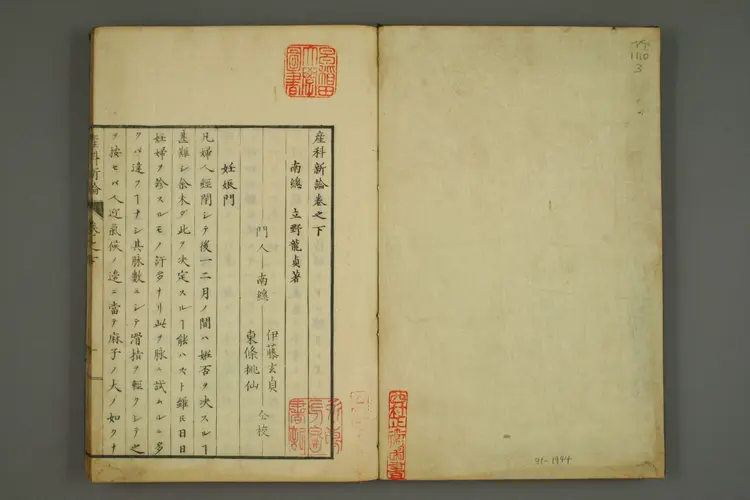 ヤ9
1110
3
産科新論巻之下
南總 立野龍貞著
門人 南總 伊藤玄貞
東條桃仙 仝校
妊娠門
凡婦人經閉シテ後一二月ノ間ハ妊否ヲ决スルヿ
甚難シ余未ダ此ヲ决定スルヿ能ハズト雖ㇺ日日
妊婦ヲ診スルモノ許多ナリ此ヲ脉ニ試ムルニ多
クハ違フヿナシ其脉數ニシテ滑指ヲ輕クシテ之
ヲ按セバ人迎氣候ノ邉ニ當テ麻子ノ大ノ如クナ
産科新論 巻之下
早稲田大學圖書
91-1994